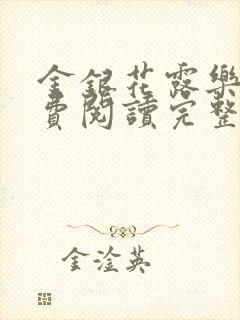 金銀花露樂
費閱讀完整
金淦英